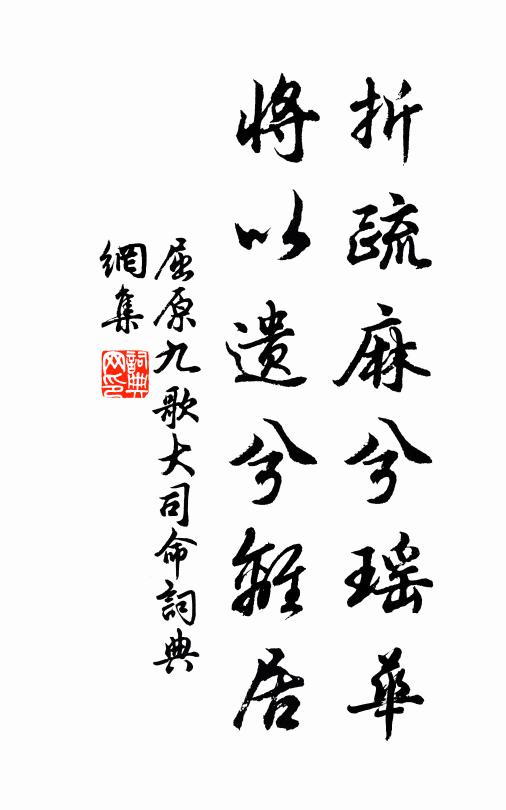 折疏麻兮瑶華
將以遺兮離居
屈原九歌大司命詞典
網集
詞典
网印